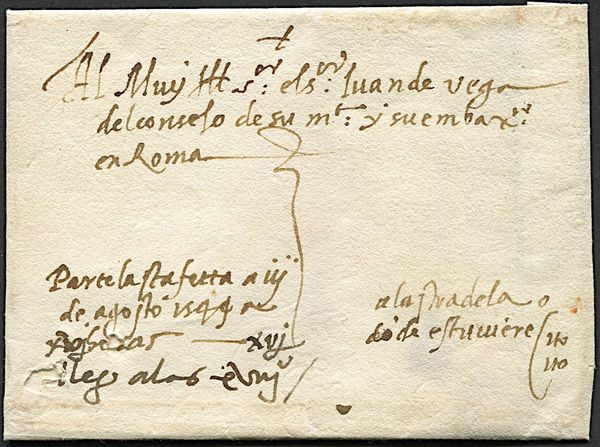 Al Muy Ill. sor. el sor. Iuan de vega
del conseJo de su mt. y su embaxor.
en Roma
Parte la stafetta a iij
de agosto 1544 a
xvj
llego a las xviij
a la strada la o
dō de estuuiere
ito
ito